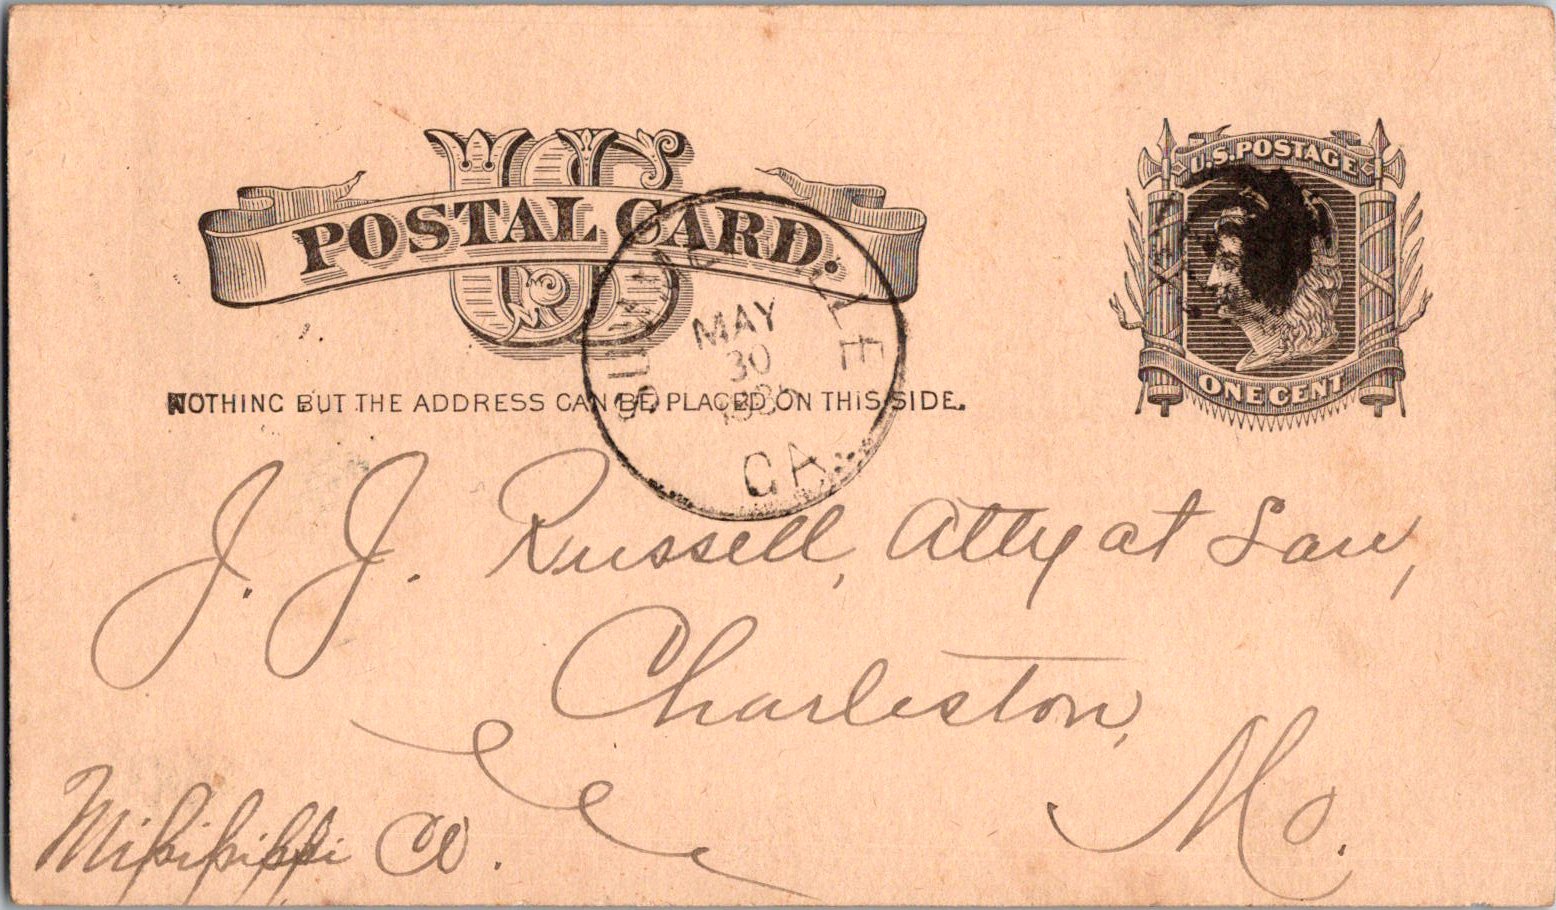 US
POSTAL CARD.
U.S. POSTAGE
ONE CENT
SUMMERVILLE
MAY
30
GA
NOTHING BUT THE ADDRESS CAN BE PLACED ON THIS SIDE.
J. J. Russell, Atty at Law,
Charleston,
Mo.
Missississippi Co.